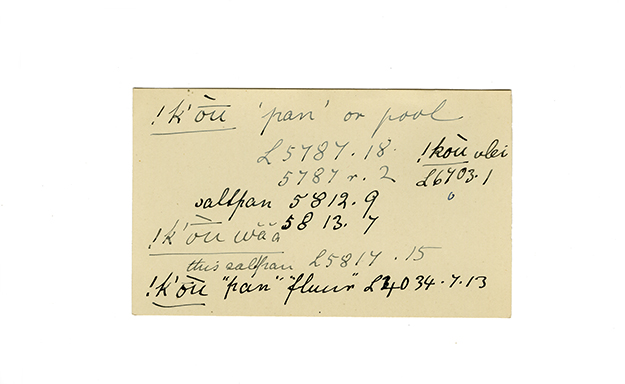 !k'òū 'pan' or pool
L5787.18.
5787 r. 2
!koū vlei
L6703.1
saltpan 5812.9
5813.7
!k'òū wā́ā
this saltpan L5817.15
!k'òū "pan" L4034.7.13